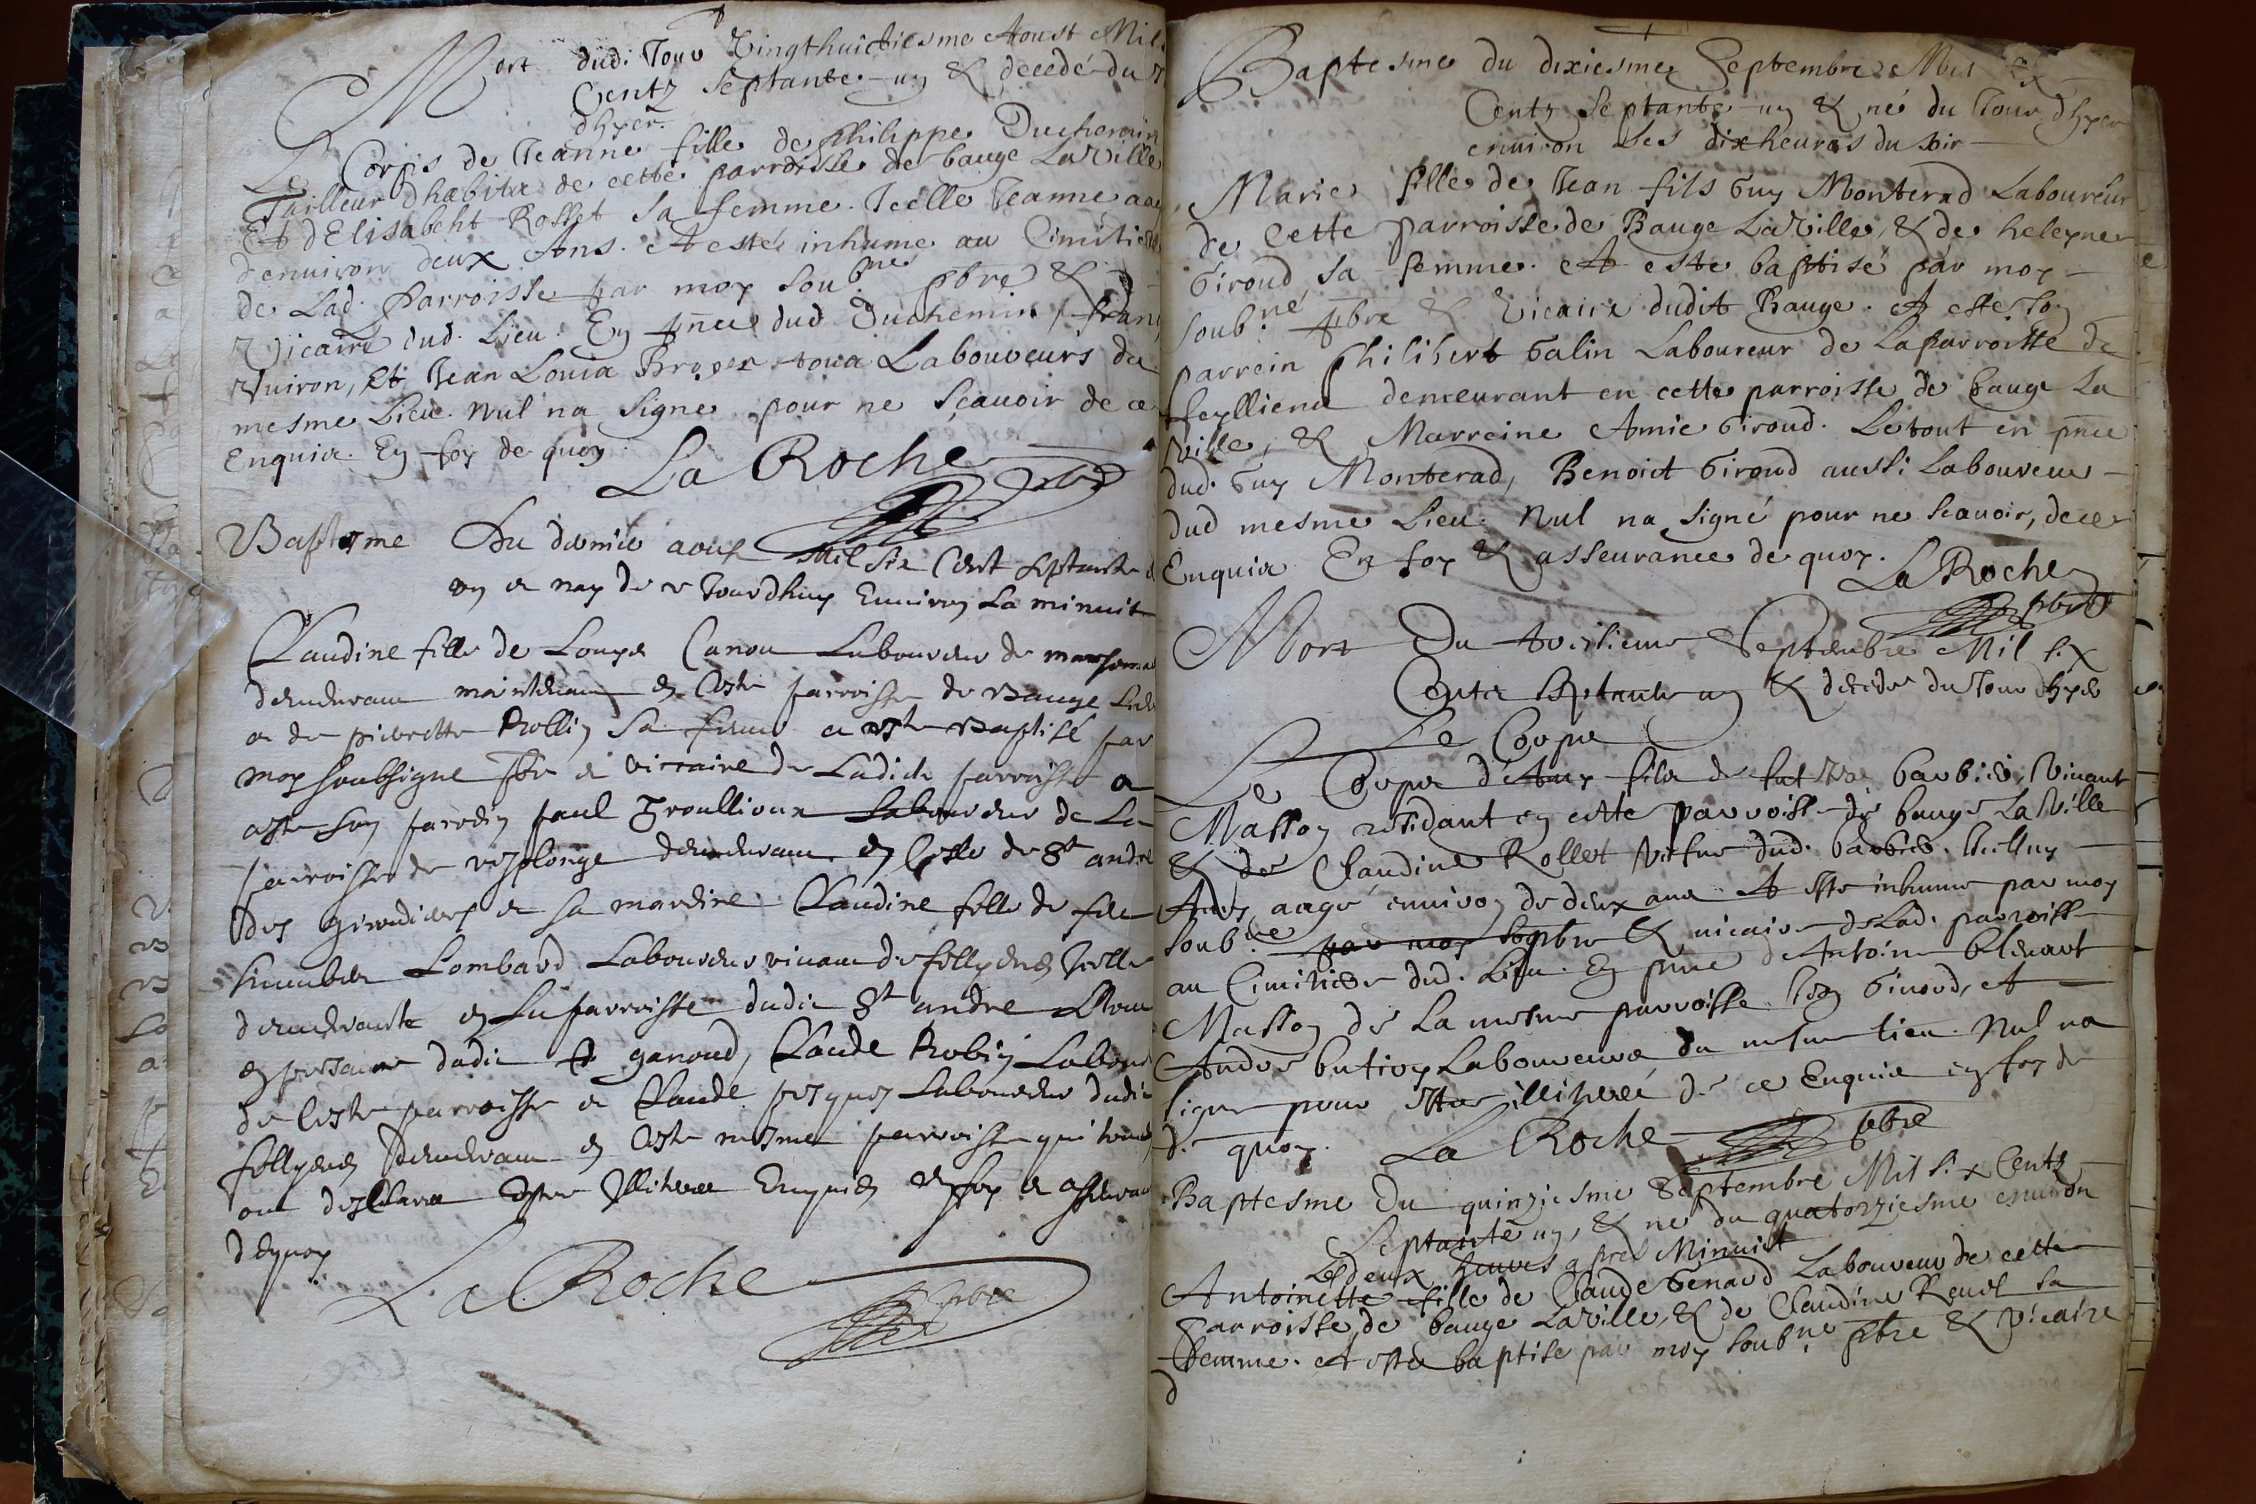 Mort dud. Jour Vingthuictiesme Aoust Mil
Centz Septante un & decedé du
dhyer.
Le Corps de Jeanne fille de Philippe Duchemin
Tailleur dhabitz de cette parroisse de bauge La Ville
Et dElisabeht Rosset sa femme. Icelle Jeanne aag
denuiron deux Ans. A esté inhume au Cimitie
de Lad. Parroisse par moy soub.né pbre &
Vicaire dud. Lieu. En pnce dud Duchemin, fran
Vuiron, Et Jean Louis Broyer tous Laboureurs du
mesme Lieu. Nul na signe pour ne sçauoir de ce
Enquis. En foy de quoy
La Roche pbre
Baptesme Du dernier aoust Mil six Cent septante
un et nay de ce Jourdhuy Enuiron La minuit
Claudine fille de Louys Canon Laboureur de
demeurant maintenant en Ceste parroisse de Bauge
et de pierrette Rollin sa femme a este Baptisé par
moy soubsigne pbre et viccaire de Ladicte parroisse a
este son parrein paul Laboureur de La
parroisse de replonge demeurant en Celle de St andre
des et sa mareine Claudine fille de feu
humbert Lombard Laboureur viuant de feillyens Icelle
demeurante en La parroisse dudit St andre Le tout
en presance dudit ganoud, Claude Robin Labour
de Ceste parroisse et Claude Laboureur dudit
feillyens demeurant en Ceste mesme parroisse qui tous
ont desclare Estre Illiteres Enquis en foy et asseuranc
dequoy
La Roche pbre
Baptesme du dixiesme Septembre Mil six
Centz Septante un & né du Jour dhyer
enuiron Les dix heures du soir
Marie fille de Jean fils Guy Monterad Laboureur
de Cette Parroisse de Bauge La Ville, & de heleyne
Giroud, sa femme. A este baptisé par moy
soub.né Pbre & Vicaire dudit Bauge. A esté son
parrein Philibert Galin Laboureur de La Parroisse de
feylliens demeurant en cette parroisse de bauge La
Ville, & Marreine Amie Giroud. Le tout en pnce
dud. Guy Monterad, Benoict Giroud aussi Laboureur
dud mesme Lieu. Nul na signé pour ne scauoir, de ce
Enquis. En foy & asseurance de quoy.
La Roche pbre
Mort Du treisieme Septembre Mil six
Centz septante un & decede du Jour dhyer
Le Corps
Le Corps d'Andy fils de fut barbier, Viuant
Masson residant en cette parroisse de bauge La Ville
& de Claudine Rollet Vefue dud. barbier. Icelluy
Andy, aagé enuiron de deux ans A este inhume par moy
soub.né par moy pbre & vicaire de Lad. parroisse
au Cimitiere dud. Lieu. En pnce de Antoine
Masson de La mesme parroisse. Giroud, A
Andre butiuy Laboureurs du mesme lieu. Nul na
signe pour estre illiteré de ce Enquis en foy de
de quoy. La Roche pbre
Baptesme Du quinziesme Septembre Mil six Centz
Septante un, & né du quatorziesme enuiron
Les deux heures apres Minuict
Antoinette fille de Claude Genard Laboureur de cette
parroisse de bauge La Ville, & de Claudine Reuel sa
femme. A esté baptise par moy soub.né pbre & Vicaire
d